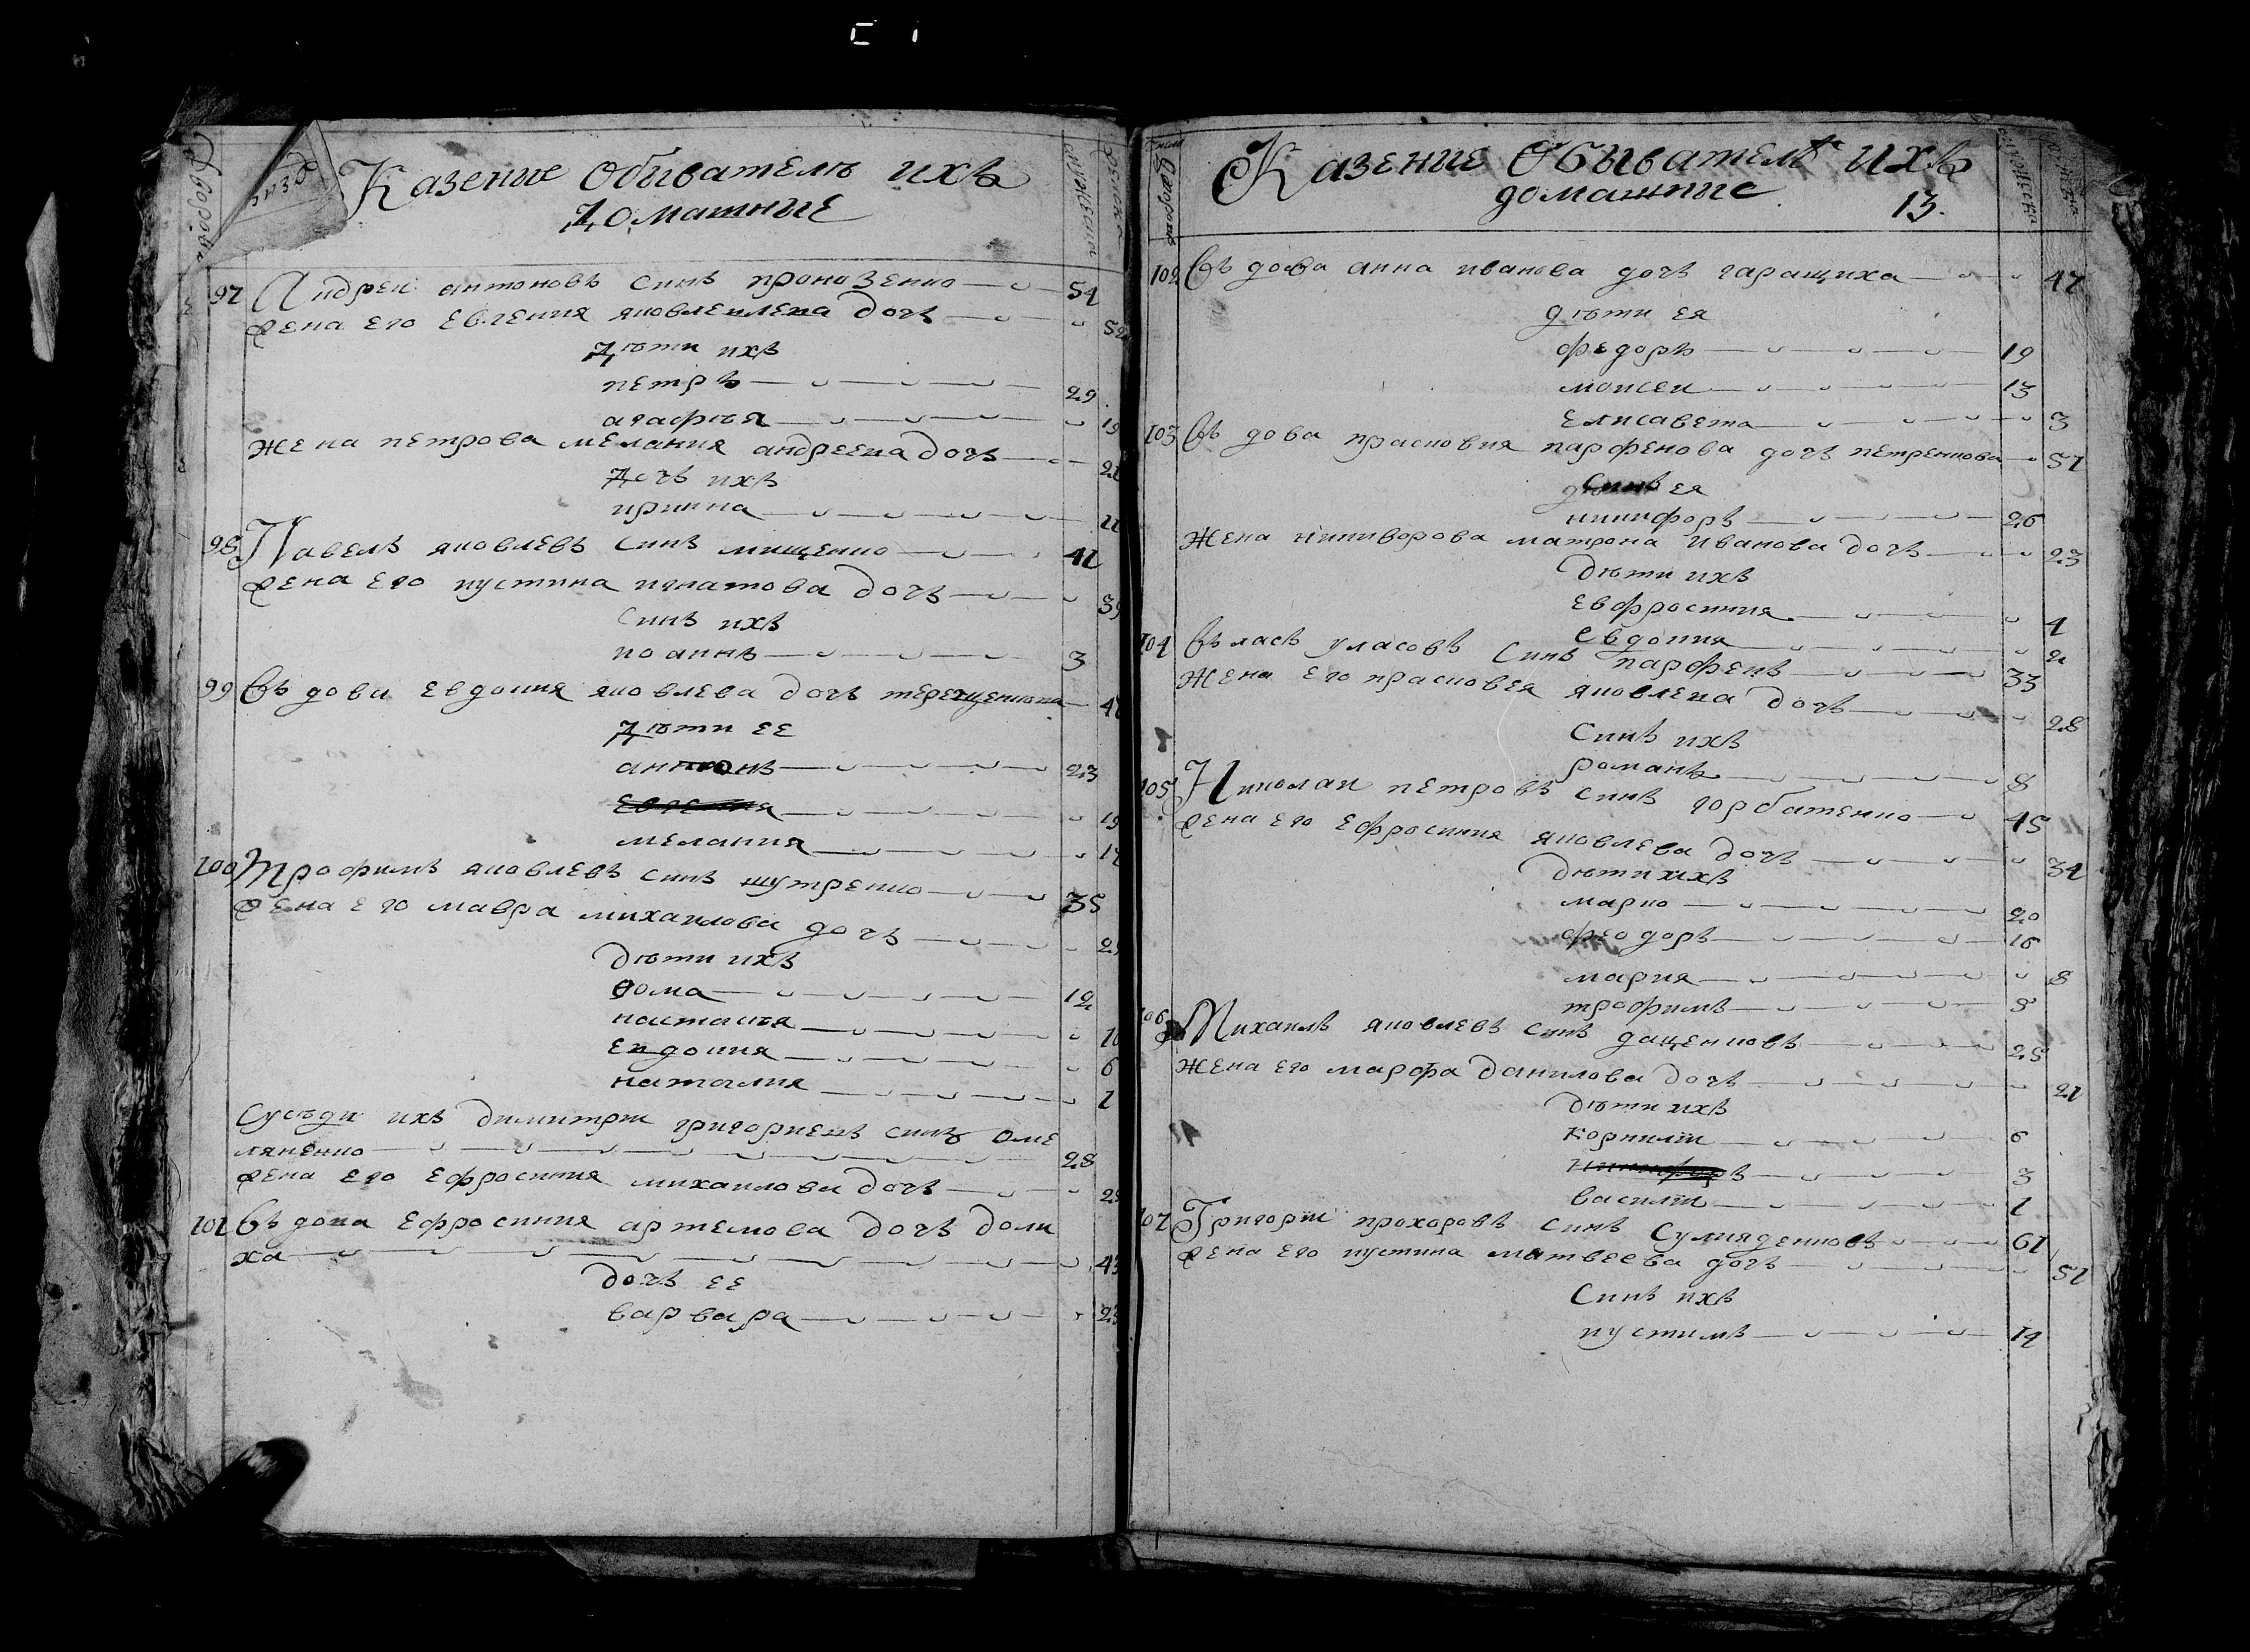 Казеные Обыватель ихъ
Домашные
97 Андреи антоновъ синъ проко3енко 54
Жена его Евгения яковлевлева дочь 52
Дѣти ихъ
петръ 29
агафѣя 19
жена петрова мелания андреева дочь 21
Дочь ихъ
ирина
98 Павелъ яковлевъ синъ мищенко 41
Жена его иустина игнатова дочь 39
Синъ ихъ
иоаннъ 3
99 Въдова евдокия яковлева дочь терещенкова
Дѣти ее
антонъ 23
19
мелания
100 Трофимъ яковлевъ синъ шутренко 35
Жена его мавра михаилова дочь
Дѣти ихъ
Ѳома 12
настасѣя
Евдокия 6
наталия 1
Сусѣди ихъ димитрии григориевъ синъ оме
ляненко 28
Жена его Ефросиния михаилова дочь
101 Въдова Ефросиния артемова дочь доли
ха
дочь ее
варвара
Казение Обыватель ихъ
домашние
13.
102 Въдова анна иванова дочь гаращиха 47
дѣти ея
федоръ 19
моисеи 13
Елисавета 3
103 Въдова прасковия парфенова дочь петренкова 51
Синъ ея
никифоръ 26
Жена никиворова матрона иванова дочь 23
Дѣти ихъ
Евфросиния 4
Евдокия 2
104 Въласъ уласовъ синъ парфенъ 33
Жена его прасковея яковлева дочь 28
Синъ ихъ
романъ 8
105 Николаи петровъ синъ горбатенко 45
Жена его Ефросиния яковлева дочь 34
Дѣти ихъ
марко 20
феодоръ 16
мария 8
трофимъ 5
106 Михаилъ яковлевъ синъ даценковъ 25
Жена его марфа данилова дочь 21
Дѣти ихъ
корнилїи 6
никифоръ 3
василїи 1
107 Григорїи прохоровъ синъ Сулияденковъ 61
Жена его иустина матвеева дочь 51
Синъ ихъ
иустимъ 14